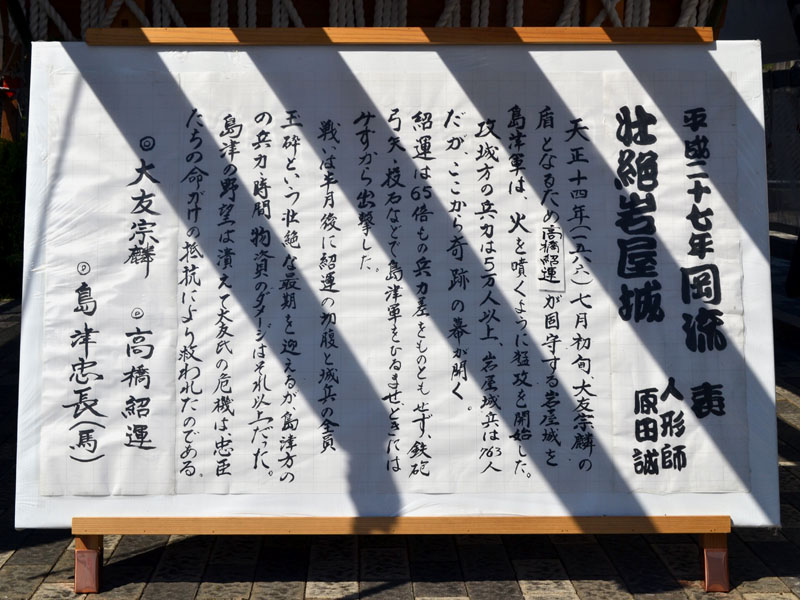 平成二十七年 岡流 表
壮絶岩屋城
人形師
原田誠
天正十四年(一五八六)七月初旬、大友宗麟の
盾となるため高橋紹運が固守する岩屋城を
島津軍は、火を噴くように猛攻を開始した。
攻城方の兵力は5万人以上、岩屋城兵は763人
だが、ここから奇跡の幕が開く。
紹運は65倍もの兵力差をものともせず、鉄砲
弓矢、投石などで島津軍をひるませときには
みずから出撃した。
戦いは半月後に紹運の切腹と城兵の全員
玉砕という壮絶な最期を迎えるが島津方の
の兵力、時間、物資のダメージはそれ以上だった。
島津の野望は潰えて大友氏の危機は忠臣
たちの命がけの抵抗により救われたのである。
◎大友宗麟 ◎高橋紹運
◎島津忠長(馬)